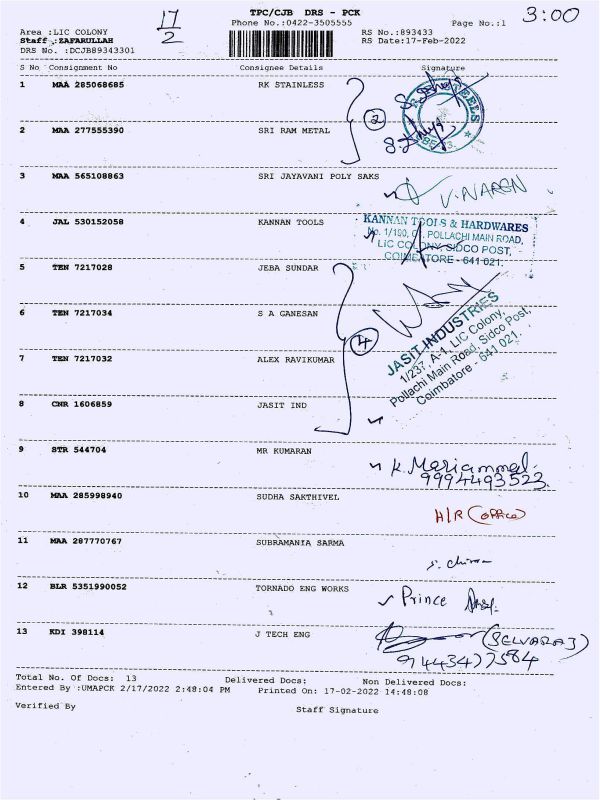 17/2
TPC/CJB DRS - PCK
3:00
Phone No.:0422-3505555
Page No.:1
Area :LIC COLONY
RS No.:893433
Staff :ZAFARULLAH
RS Date:17-Feb-2022
DRS No. :DCJB89343301
S No Consignment No Consignee Details Signature
1 MAA 285068685 RK STAINLESS
2
2 MAA 277555390 SRI RAM METAL
3 MAA 565108863 SRI JAYAVANI POLY SAKS
V.NAREN
4 JAL 530152058 KANNAN TOOLS
KANNAN TOOLS & HARDWARES
No. 1/100, POLLACHI MAIN ROAD,
LIC COLONY, SIDCO POST,
COIMBATORE - 641 021.
5 TEN 7217028 JEBA SUNDAR
6 TEN 7217034 S A GANESAN
4
7 TEN 7217032 ALEX RAVIKUMAR
JASIT INDUSTRIES
1/237, A-1, LIC Colony,
Pollachi Main Road, Sidco Post,
Coimbatore - 641 021.
8 CNR 1606859 JASIT IND
9 STR 544704 MR KUMARAN
K. Mariammal.
9994493523
10 MAA 285998940 SUDHA SAKTHIVEL
H/R (office)
11 MAA 287770767 SUBRAMANIA SARMA
12 BLR 5351990052 TORNADO ENG WORKS
Prince
13 KDI 398114 J TECH ENG
(SELVARAJ)
9443477584
Total No. Of Docs: 13 Delivered Docs: Non Delivered Docs:
Entered By :UMAPCK 2/17/2022 2:48:04 PM Printed On: 17-02-2022 14:48:08
Verified By Staff Signature